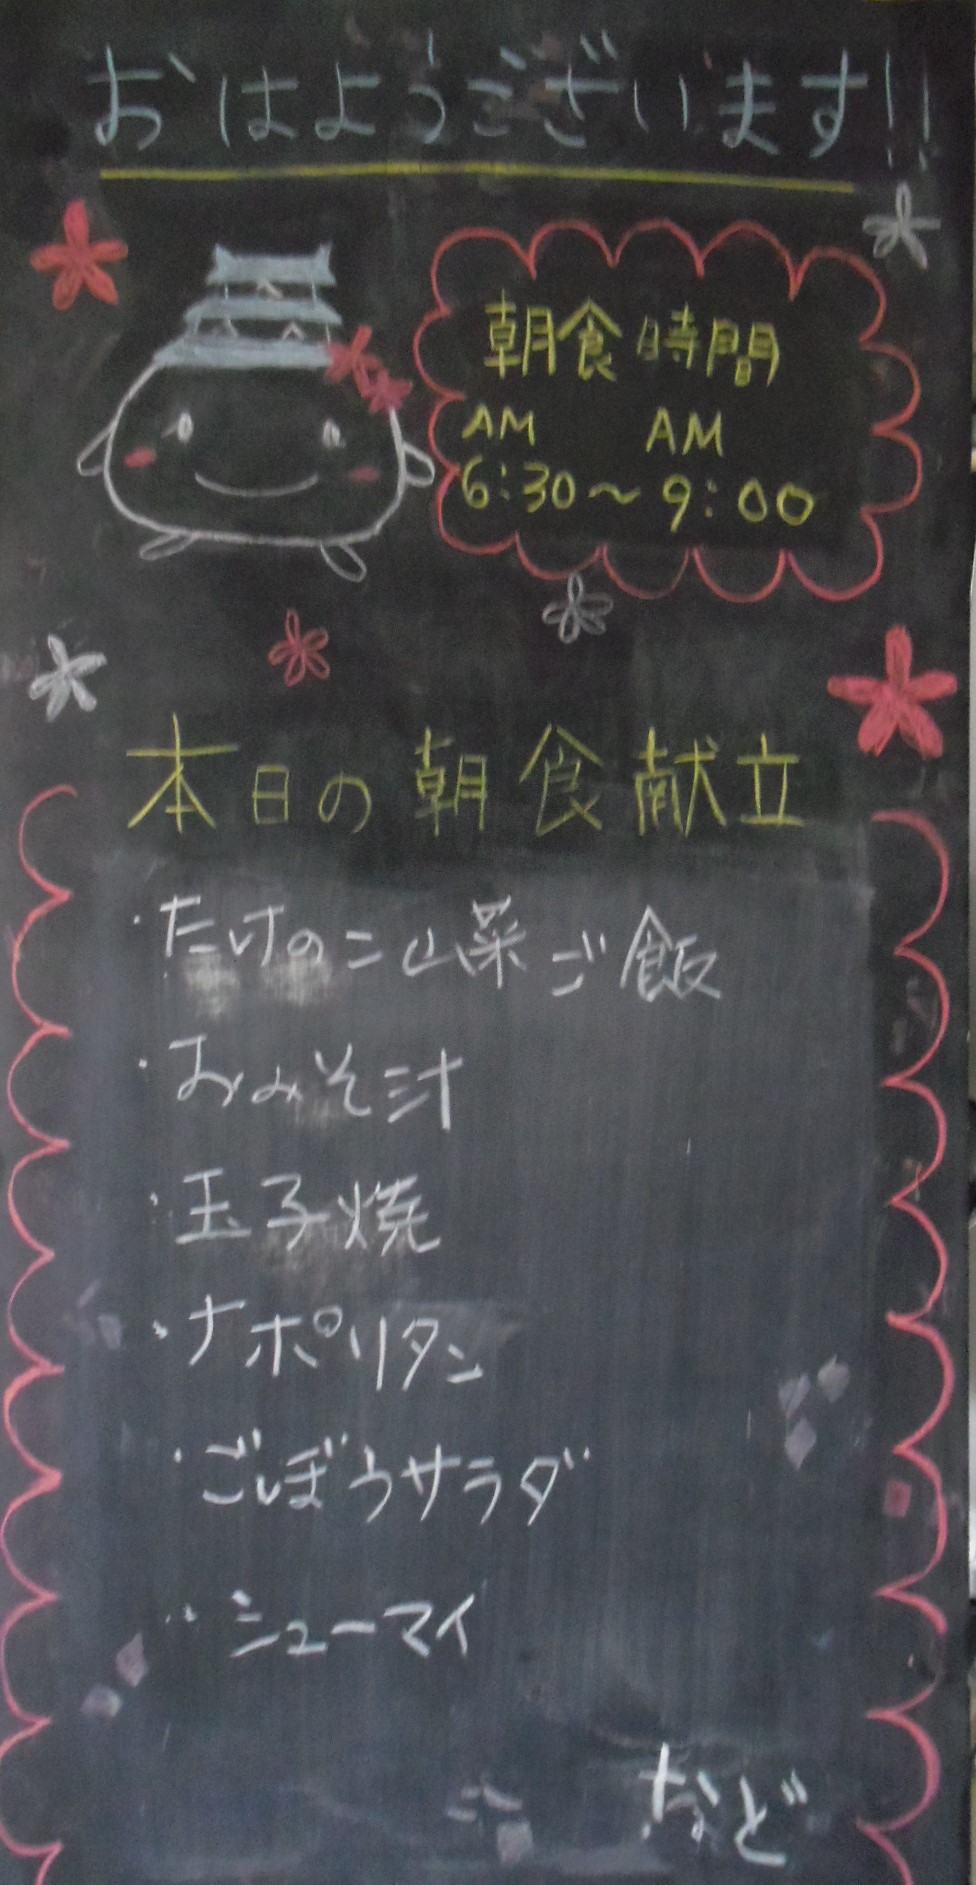 おはようございます!!
朝食時間
AM AM
6:30～9:00
本日の朝食献立
・たけのこ山菜ご飯
・おみそ汁
・玉子焼
・ナポリタン
・ごぼうサラダ
・シューマイ
など